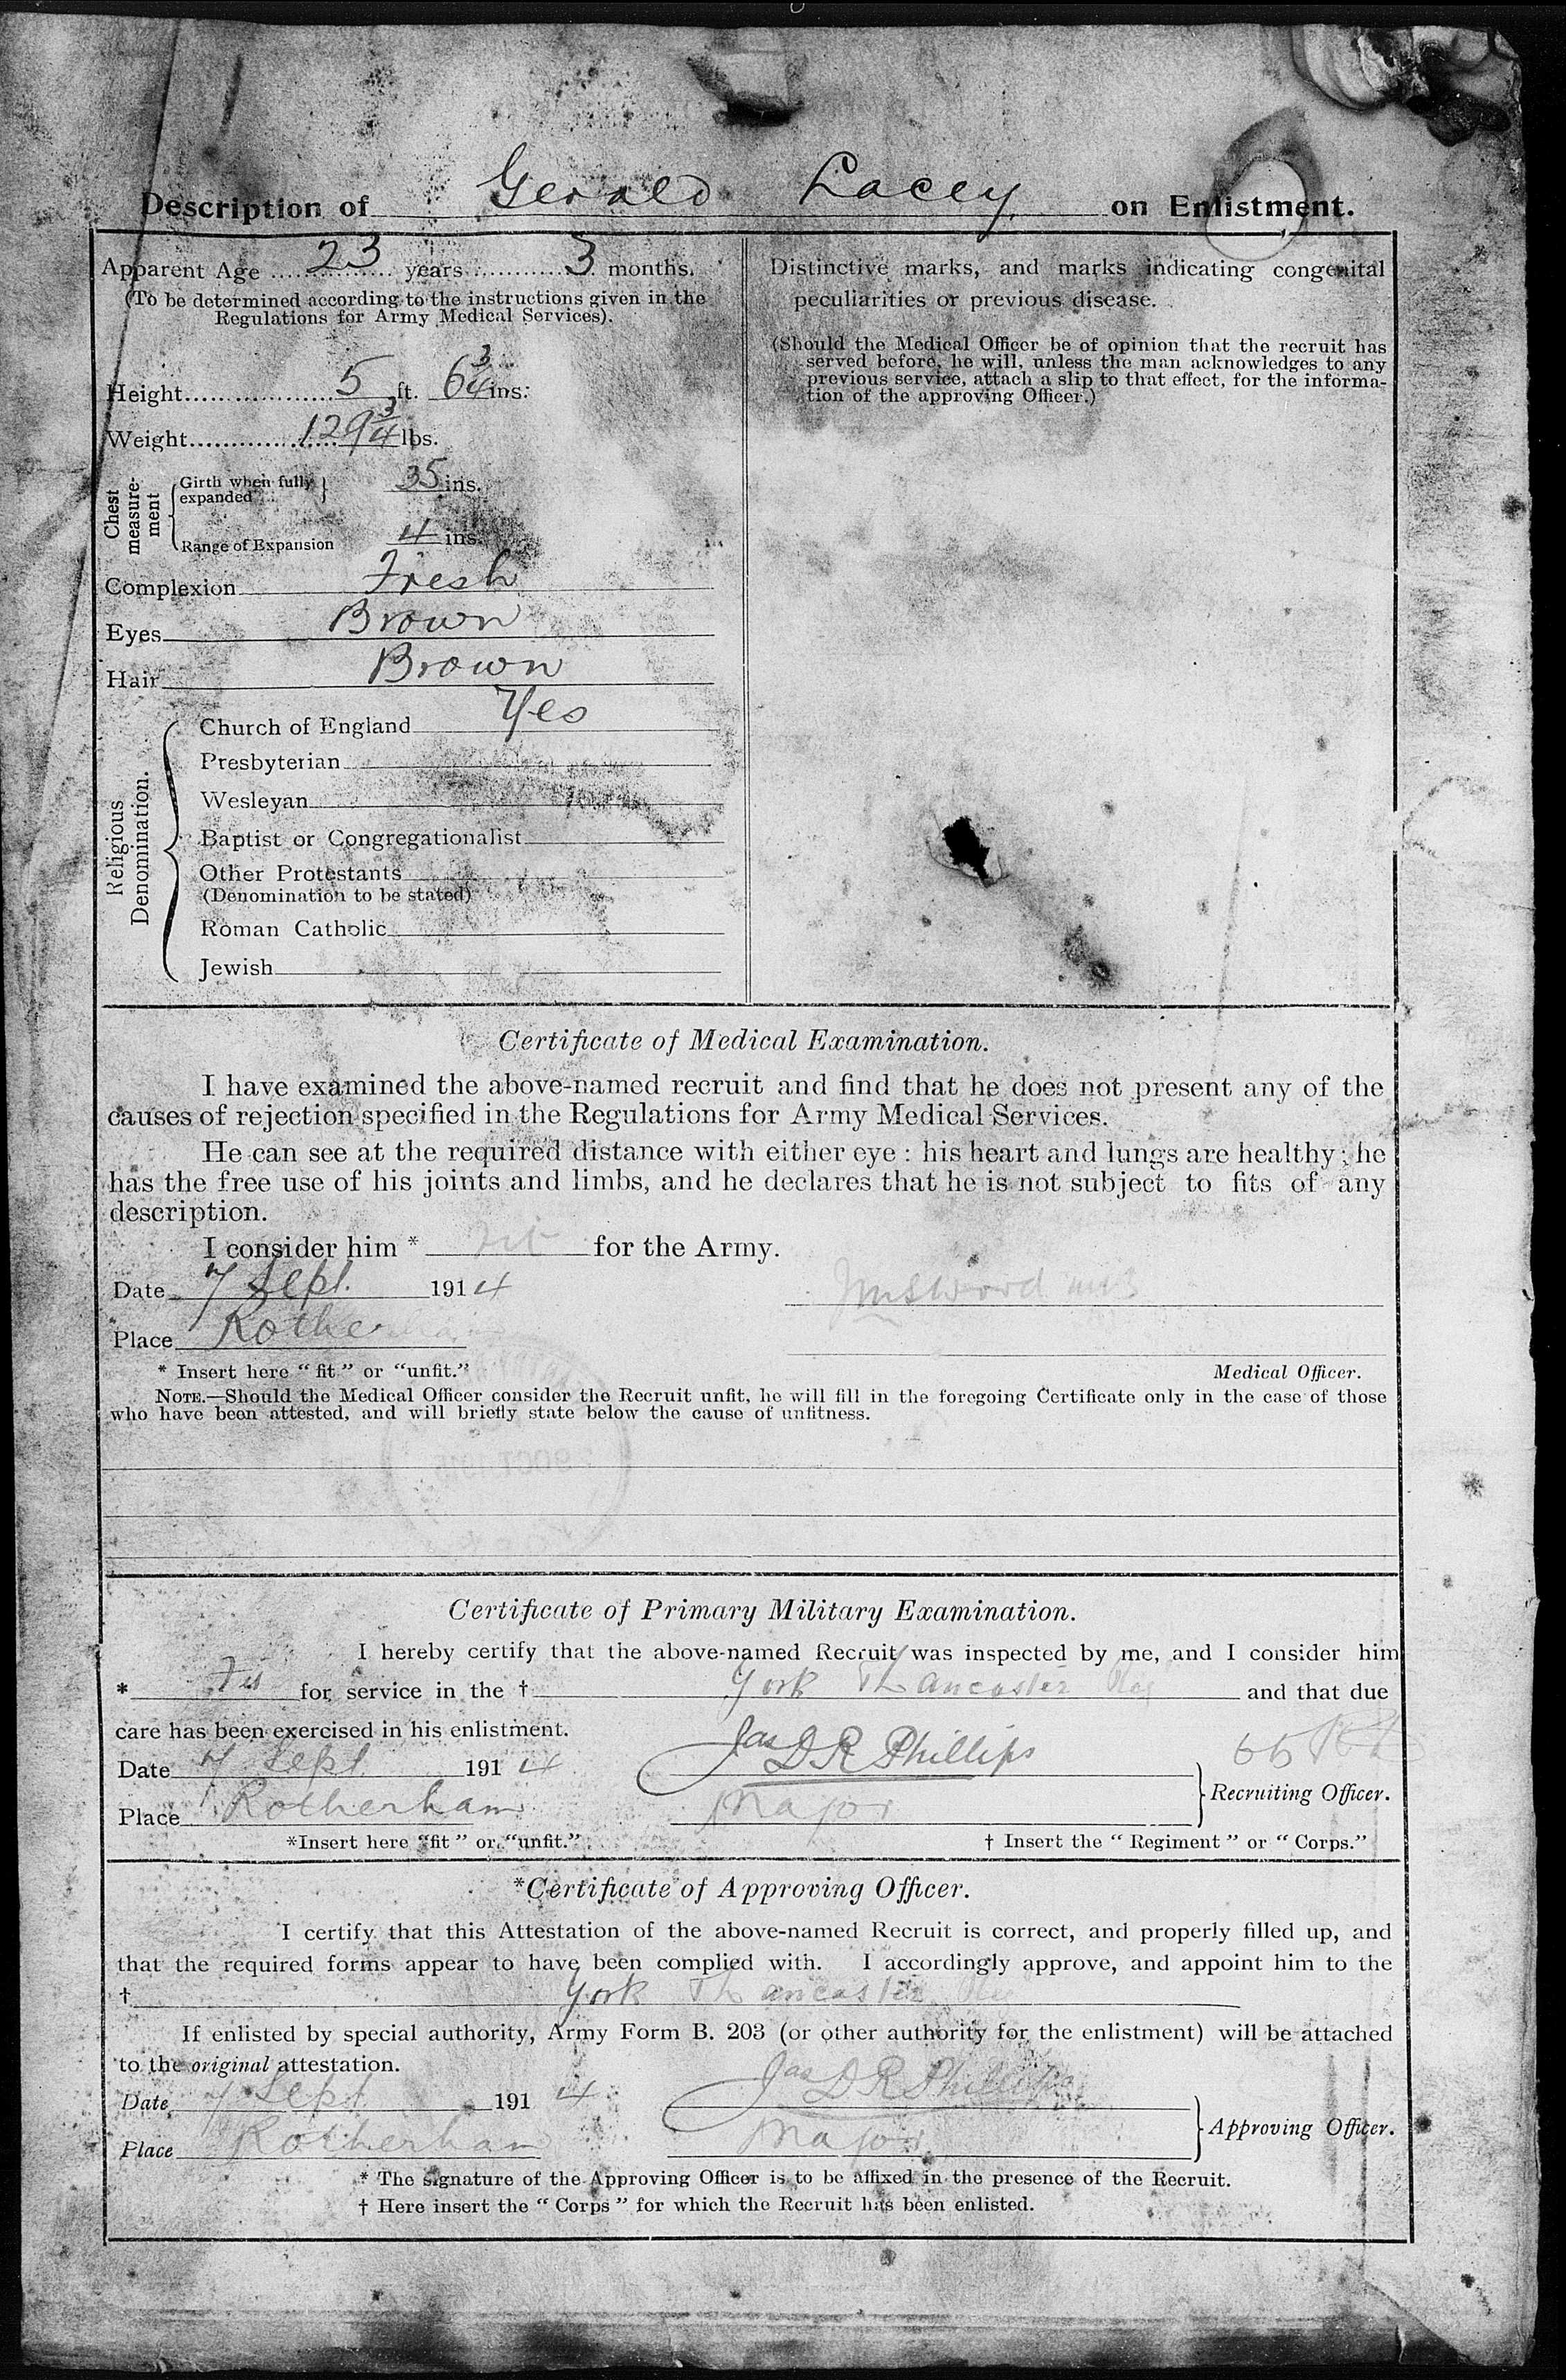 Description of Gerald Lacey on Enlistment.
Apparent Age 23 years 3 months.
(To be determined according to the instructions given in the
Regulations for Army Medical Services).
Height 5 ft. 6 3/4 ins.
Weight 129 3/4 lbs.
Chest measure-ment
Girth when fully expanded 35 ins.
Range of Expansion 4 ins.
Complexion Fresh
Eyes Brown
Hair Brown
Religious Denomination.
Church of England Yes
Presbyterian
Wesleyan
Baptist or Congregationalist
Other Protestants
(Denomination to be stated)
Roman Catholic
Jewish
Distinctive marks, and marks indicating congenital
peculiarities or previous disease.
(Should the Medical Officer be of opinion that the recruit has
served before, he will, unless the man acknowledges to any
previous service, attach a slip to that effect, for the informa-
tion of the approving Officer.)
Certificate of Medical Examination.
I have examined the above-named recruit and find that he does not present any of the
causes of rejection specified in the Regulations for Army Medical Services.
He can see at the required distance with either eye : his heart and lungs are healthy ; he
has the free use of his joints and limbs, and he declares that he is not subject to fits of any
description.
I consider him * fit for the Army.
Date 7 Sept. 1914
Place Rotherham
* Insert here "fit" or "unfit."
Medical Officer.
NOTE.—Should the Medical Officer consider the Recruit unfit, he will fill in the foregoing Certificate only in the case of those
who have been attested, and will briefly state below the cause of unfitness.
Certificate of Primary Military Examination.
I hereby certify that the above-named Recruit was inspected by me, and I consider him
* Fit for service in the † York & Lancaster Reg and that due
care has been exercised in his enlistment.
Date 7 Sept 1914
Jas D R Phillips
Place Rotherham
Major
Recruiting Officer.
*Insert here "fit" or "unfit."
† Insert the "Regiment" or "Corps."
*Certificate of Approving Officer.
I certify that this Attestation of the above-named Recruit is correct, and properly filled up, and
that the required forms appear to have been complied with. I accordingly approve, and appoint him to the
† York & Lancaster Reg
If enlisted by special authority, Army Form B. 203 (or other authority for the enlistment) will be attached
to the original attestation.
Date 7 Sept 1914
Jas D R Phillips
Place Rotherham
Major
Approving Officer.
* The signature of the Approving Officer is to be affixed in the presence of the Recruit.
† Here insert the "Corps" for which the Recruit has been enlisted.